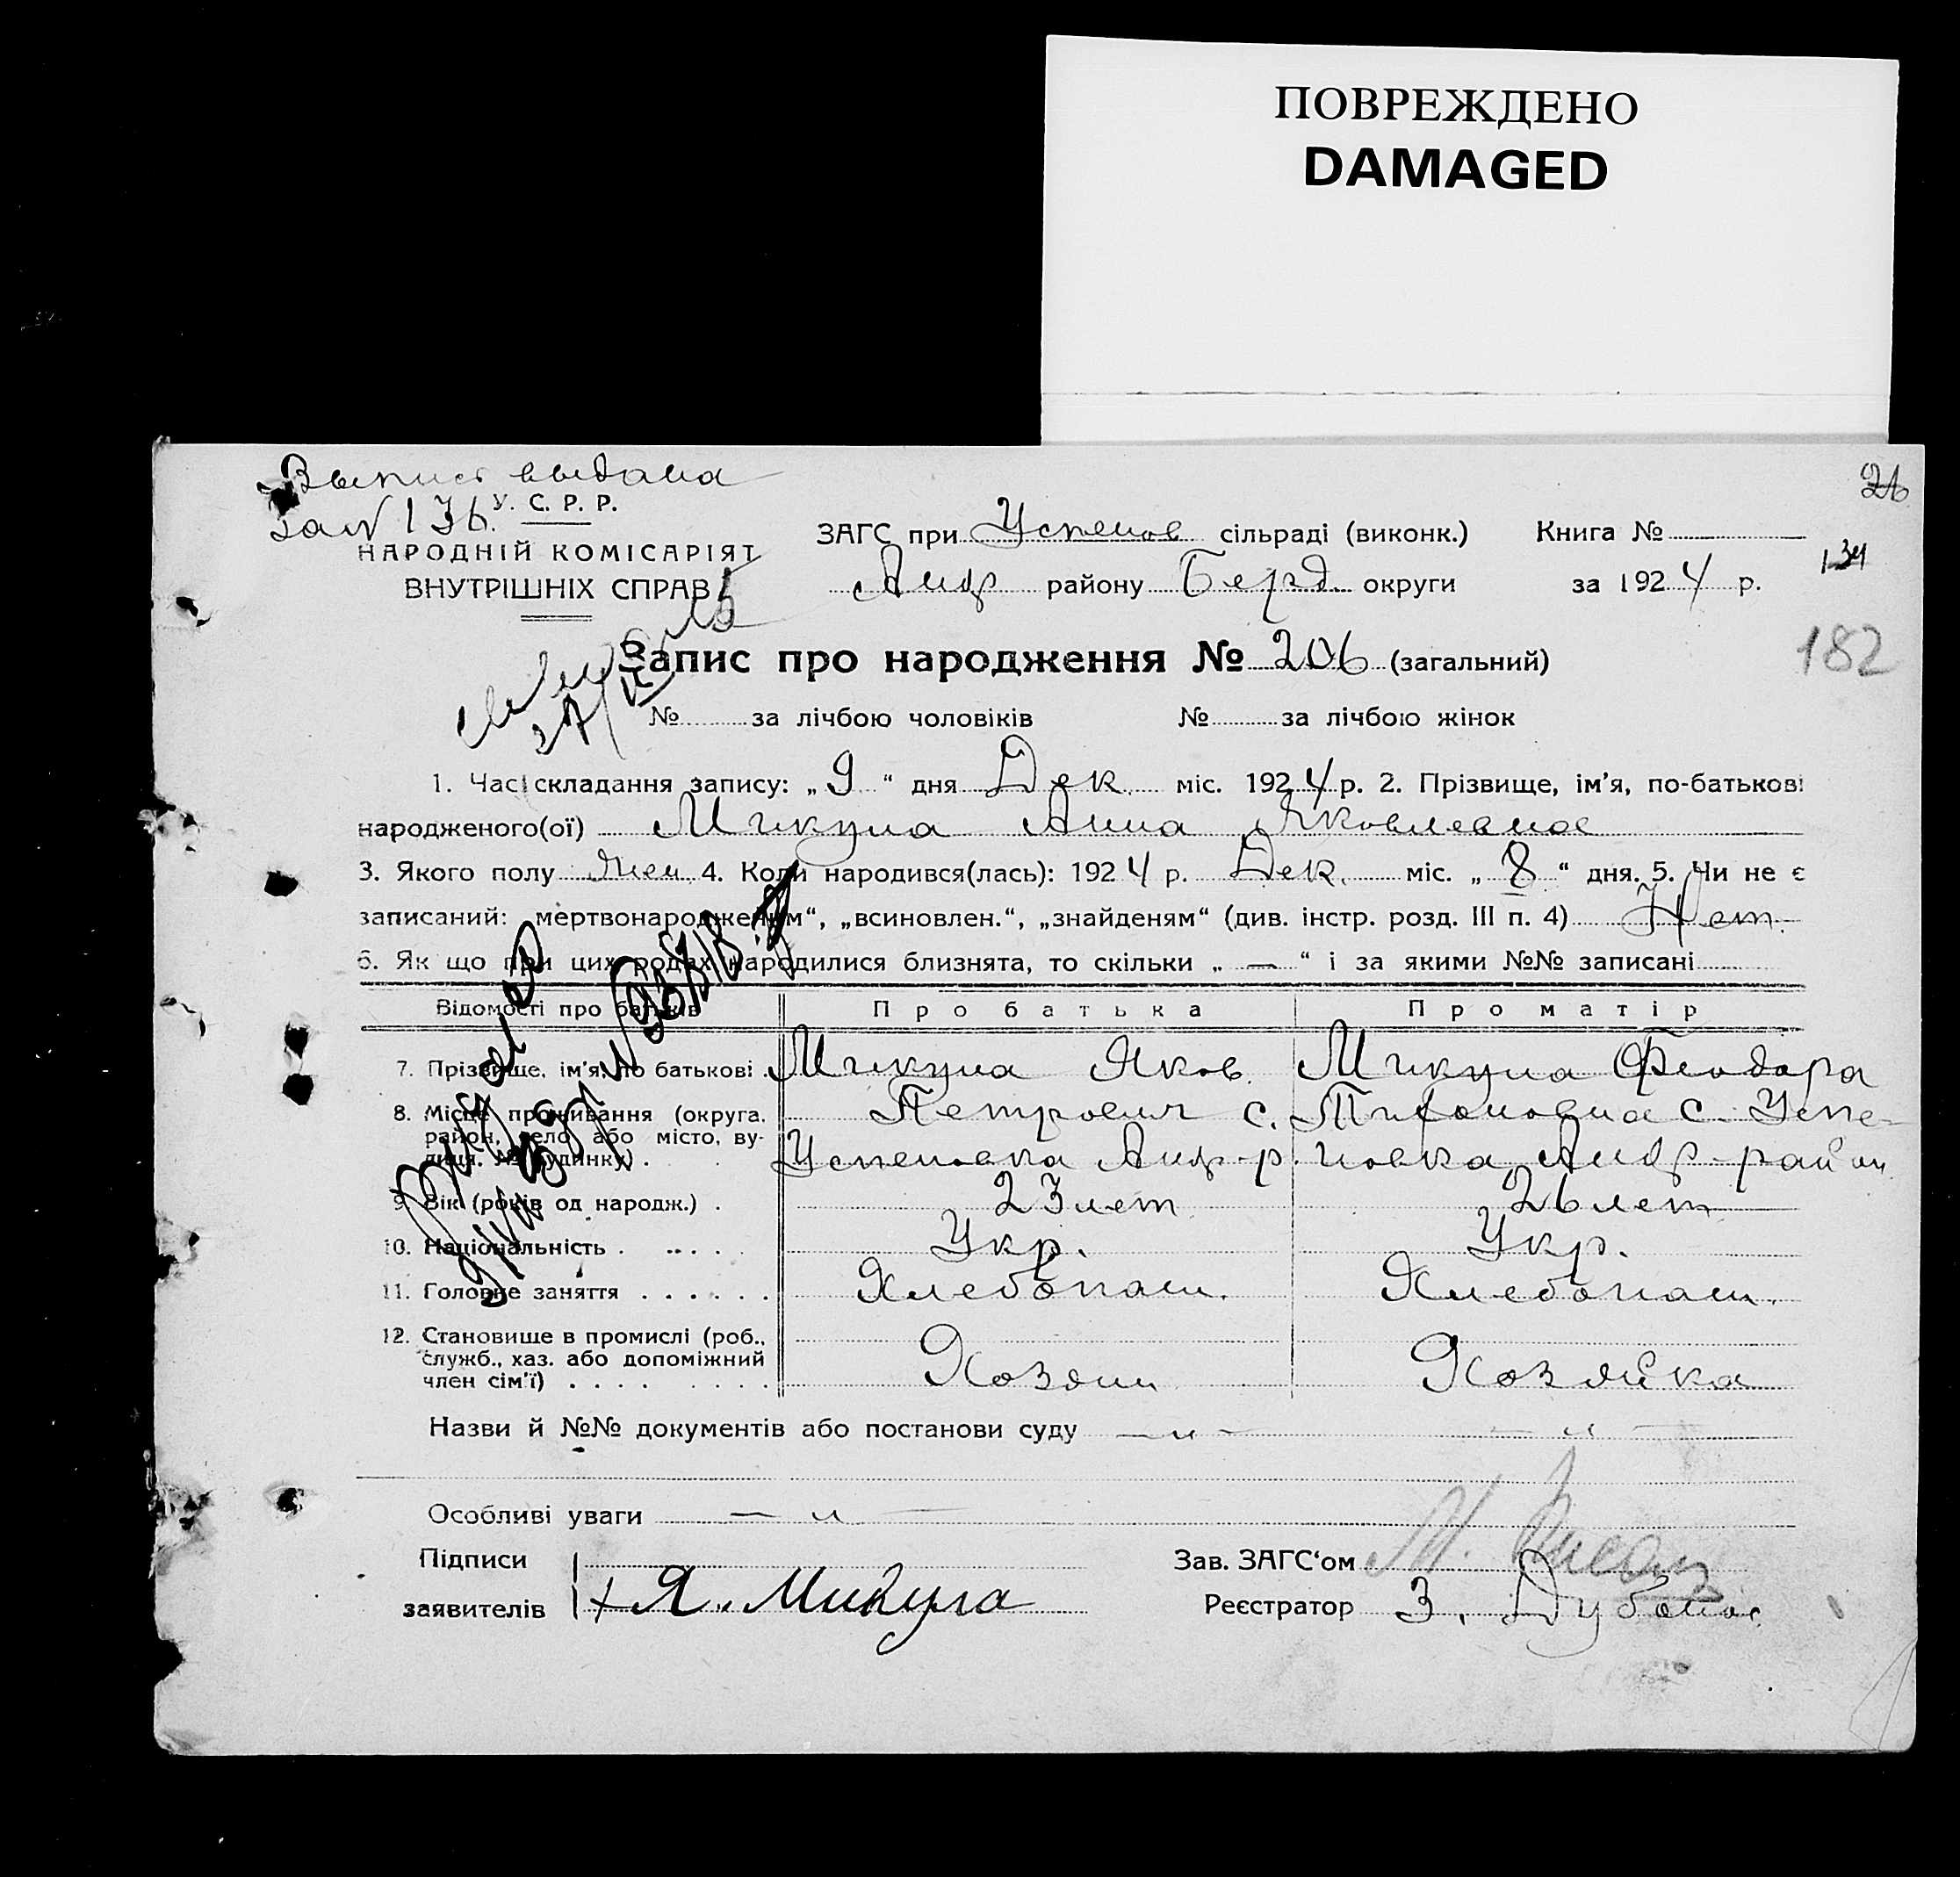 ПОВРЕЖДЕНО
DAMAGED
Выпись выдана
за № 136.
У. С. Р. Р.
НАРОДНІЙ КОМІСАРІЯТ
ВНУТРІШНІХ СПРАВ
26
ЗАГС при Успенов сільраді (виконк.) Книга №
Андр району Берд. округи за 1924 р.
134
182
Запис про народження № 206 (загальний)
№ за лічбою чоловіків № за лічбою жінок
1. Час складання запису: „ 9 “ дня Дек. міс. 1924 р. 2. Прізвище, ім’я, по-батькові
народженого(ої) Микула Анна Яковлевна
3. Якого полу жен. 4. Коли народився(лась): 1924 р. Дек. міс. „ 8 “ дня. 5. Чи не є
записаний: „мертвонародженим“, „всиновлен.“, „знайденям“ (див. інстр. розд. III п. 4) Нет.
6. Як що при цих родах народилися близнята, то скільки „ — “ і за якими №№ записані
Відомості про батьків Про батька Про матір
7. Прізвище, ім’я, по батькові . Микула Яков. Микула Феодора
8. Місце проживання (округа, Петрович с. Тихоновна с. Успе-
район, село або місто, ву-
лиця, № будинку) . Успеновка Андр-р. новка Андр-район
9. Вік (років од народж.) . 23 лет 26 лет
10. Національність . Укр. Укр.
11. Головне заняття . . . . . . Хлебопаш. Хлебопаш.
12. Становище в промислі (роб.,
служб., хаз. або допоміжний
член сім’ї) . . . . Хозяин Хозяйка
Назви й №№ документів або постанови суду — „ — — „ —
Особливі уваги — „ —
Підписи
заявителів + Я. Микула
Зав. ЗАГС‘ом
Реєстратор З.